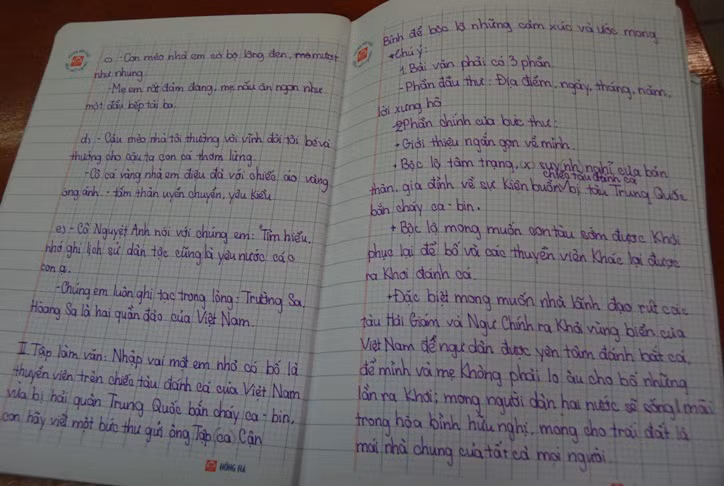 c) - Con mèo nhà em có bộ lông đen, mềm mượt
như nhung.
- Mẹ em rất đảm đang, mẹ nấu ăn ngon như
một đầu bếp tài ba.
d) - Cậu mèo nhà tôi thường vòi vĩnh đòi tôi bơi và
thưởng cho cậu ta con cá thơm lừng.
- Cô cá vàng nhà em điệu đà với chiếc áo vàng
óng ánh, tấm thân uyển chuyển, yêu kiều.
e) - Cô Nguyệt Anh nói với chúng em: "Tìm hiểu,
nhớ ghi lịch sử dân tộc cũng là yêu nước các
con ạ.
- Chúng em luôn ghi tạc trong lòng: Trường Sa,
Hoàng Sa là hai quần đảo của Việt Nam.
II. Tập làm văn: Nhập vai một em nhỏ có bố là
thuyền viên trên chiếc tàu đánh cá của Việt Nam
vừa bị hải quân Trung Quốc bắn cháy ca-bin,
con hãy viết một bức thư gửi ông Tập (ca) Cận
HỒNG HÀ
Bình để bộc lộ những cảm xúc và ước mong
+ Chú ý:
1. Bài văn phải có 3 phần.
- Phần đầu thư: Địa điểm, ngày, tháng, năm,
lời xưng hô
- Phần chính của bức thư:
+ Giới thiệu ngắn gọn về mình.
+ Bộc lộ tâm trạng, suy nghĩ của bản
thân, gia đình về sự kiện buồn chiếc tàu đánh cá bị tàu Trung Quốc
bắn cháy ca-bin.
+ Bộc lộ mong muốn con tàu sớm được khôi
phục lại để bố và các thuyền viên khác lại được
ra khơi đánh cá.
+ Đặc biệt mong muốn nhà lãnh đạo rút các
tàu Hải Giám và Ngư Chính ra khỏi vùng biển của
Việt Nam để ngư dân được yên tâm đánh bắt cá,
để mình và mẹ không phải lo âu cho bố những
lần ra khơi; mong người dân hai nước sẽ sống mãi
trong hòa bình hữu nghị, mong cho trái đất là
mái nhà chung của tất cả mọi người.